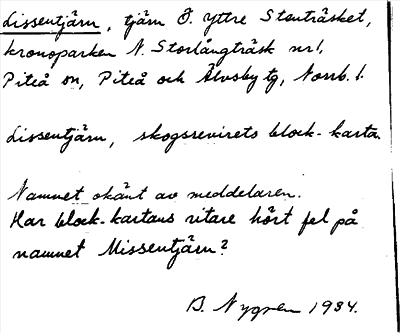 Lissentjärn, tjärn Ö. Yttre Stenträsket,
kronoparken N. Storlångträsk nr 1,
Piteå sn, Piteå och Älvsby tg, Norrb. l.
Lissentjärn, skogsrevirets block-karta.
Namnet okänt av meddelaren.
Har block-kartans ritare hört fel på
namnet Missentjärn?
B. Nygren 1934.